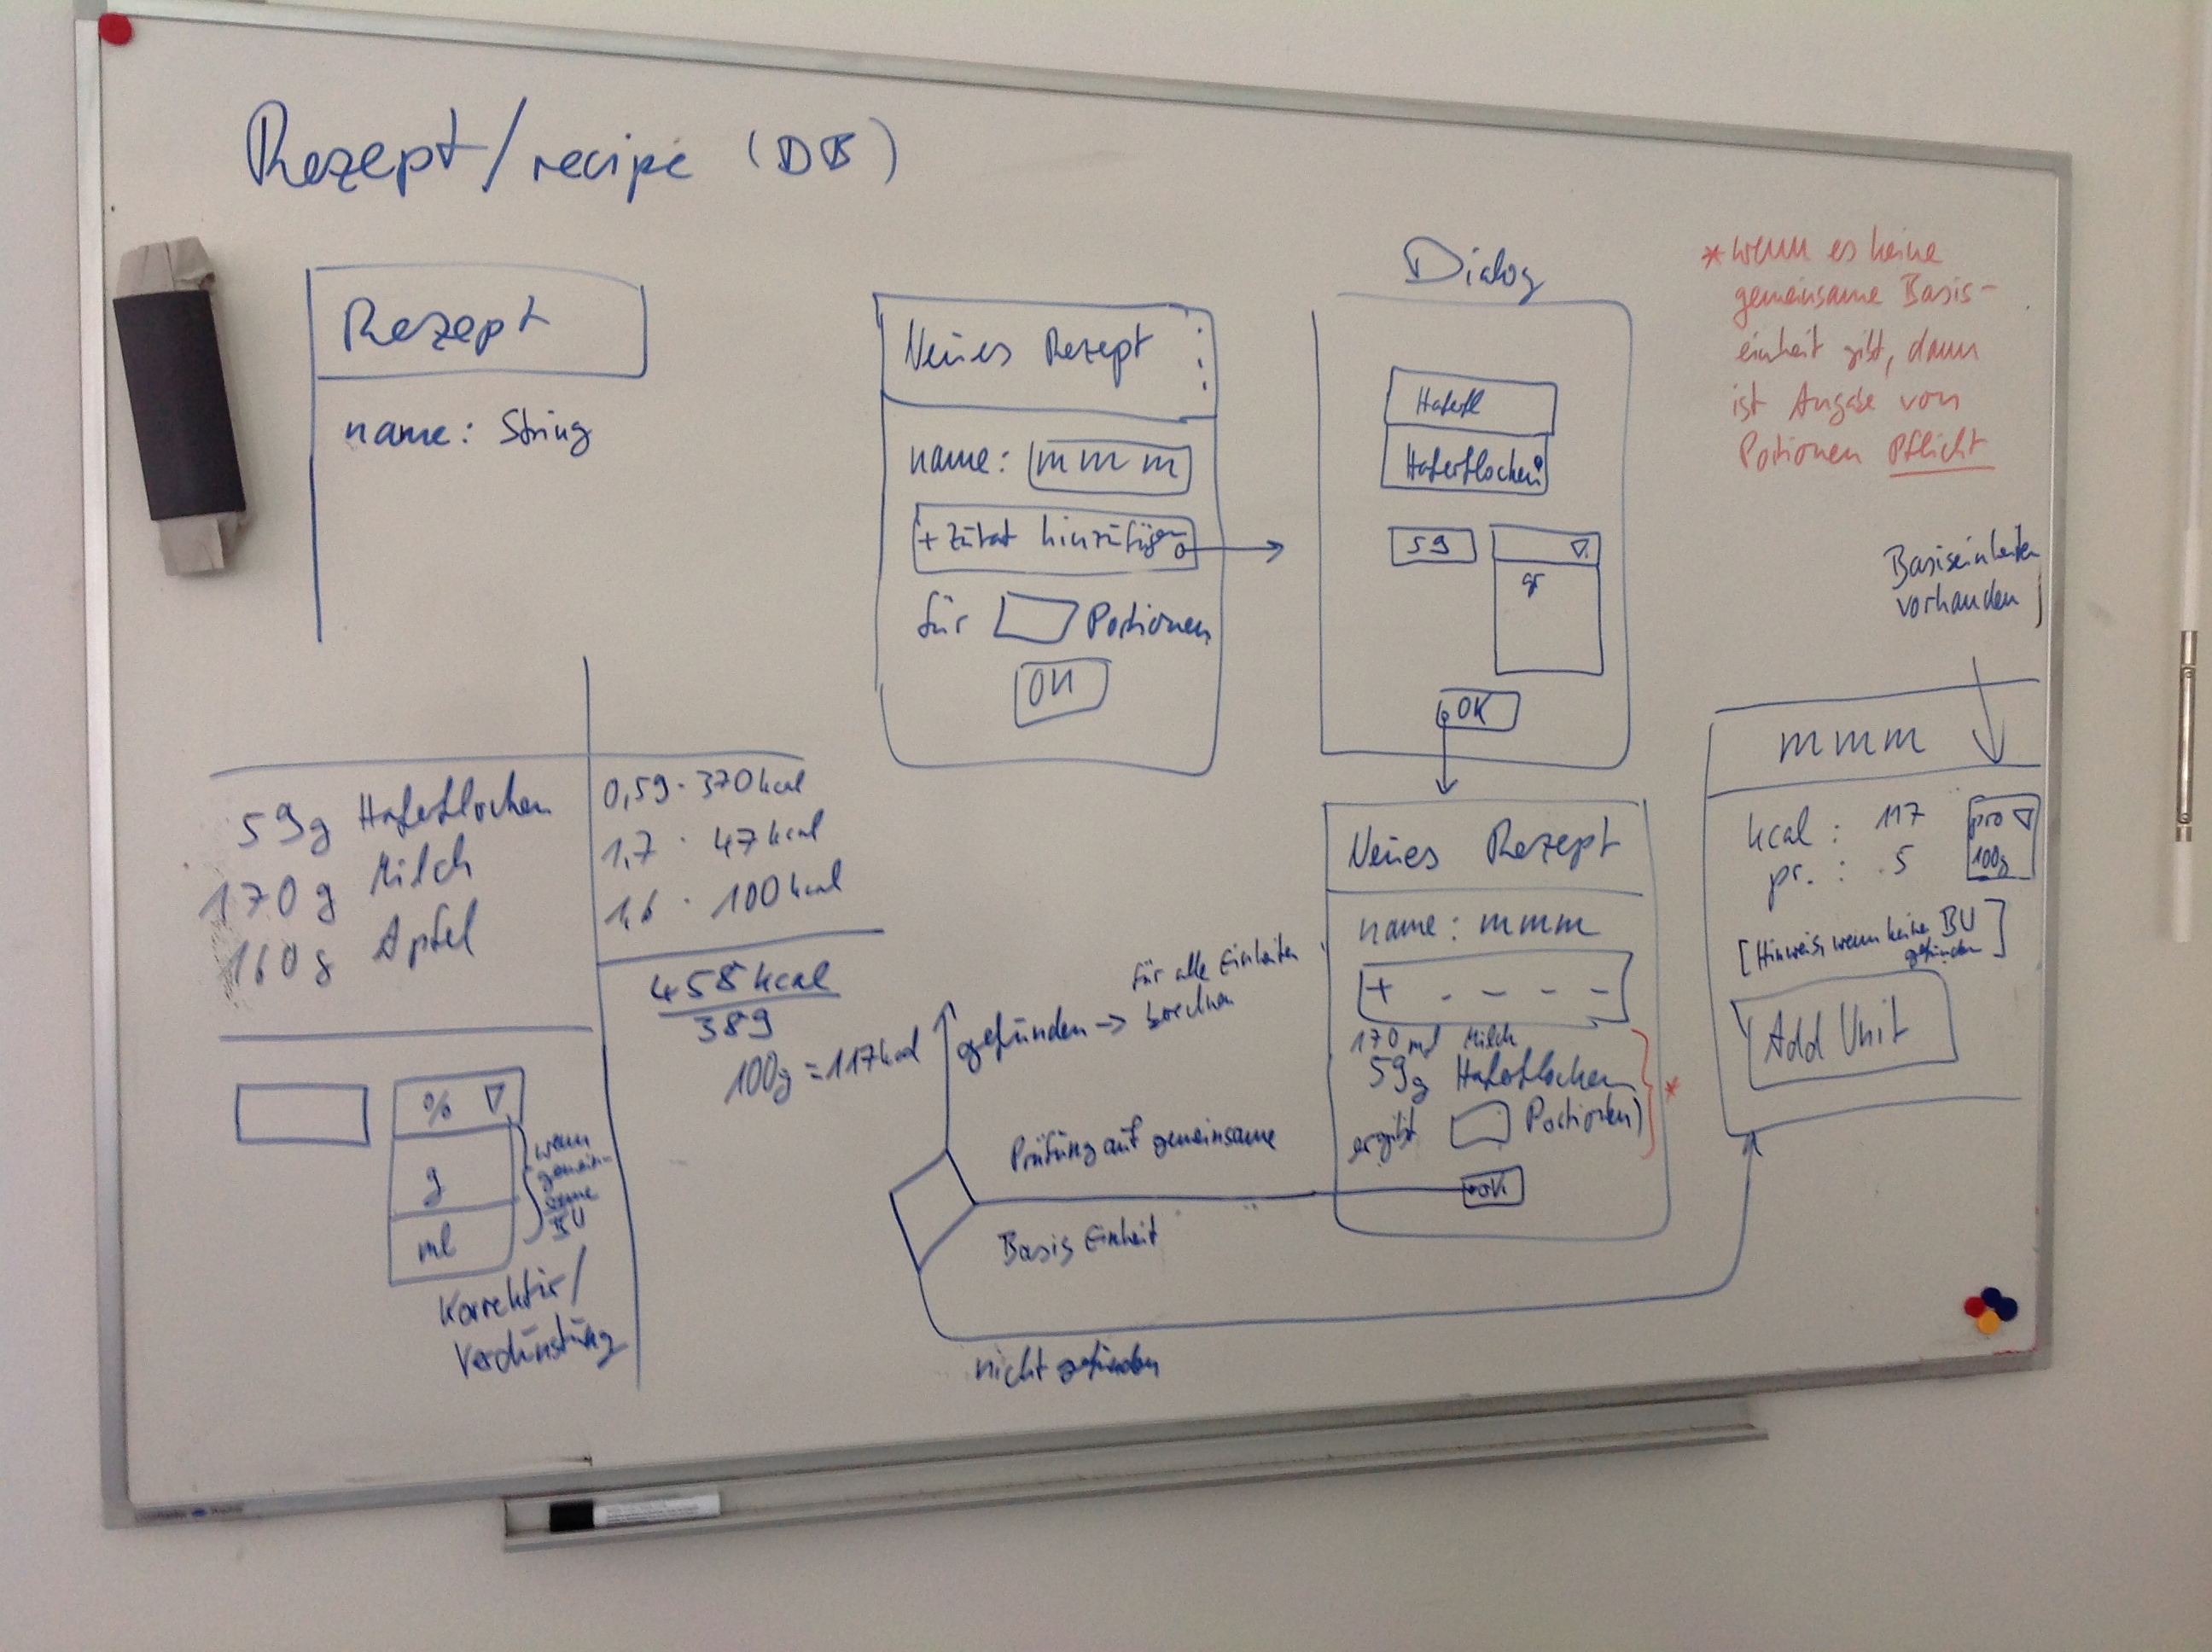 Rezept/recipe (DB)
Rezept
name: String
Neues Rezept
name: mmm
+ Zutat hinzufügen
für Portionen
OK
Dialog
Haferfl
Haferflocken
59
gr
OK
* wenn es keine
gemeinsame Basis-
einheit gibt, dann
ist Angabe von
Portionen Pflicht
Basiseinheiten
vorhanden
59g Haferflocken
170g Milch
160g Apfel
0,59 · 370kcal
1,7 · 47kcal
1,6 · 100kcal
458kcal
389
100g = 117kcal
% 
g
ml
wenn
gemein-
same
BU
Korrektur/
Verdunstung
gefunden -> für alle Einheiten
berechnen
Prüfung auf gemeinsame
Basis Einheit
nicht gefunden
Neues Rezept
name: mmm
+ - - - -
170 ml Milch
59g Haferflocken
ergibt Portionen)
*
OK
mmm
kcal: 117
pr.: 5
pro
100g
[Hinweis, wenn keine BU
gefunden]
Add Unit